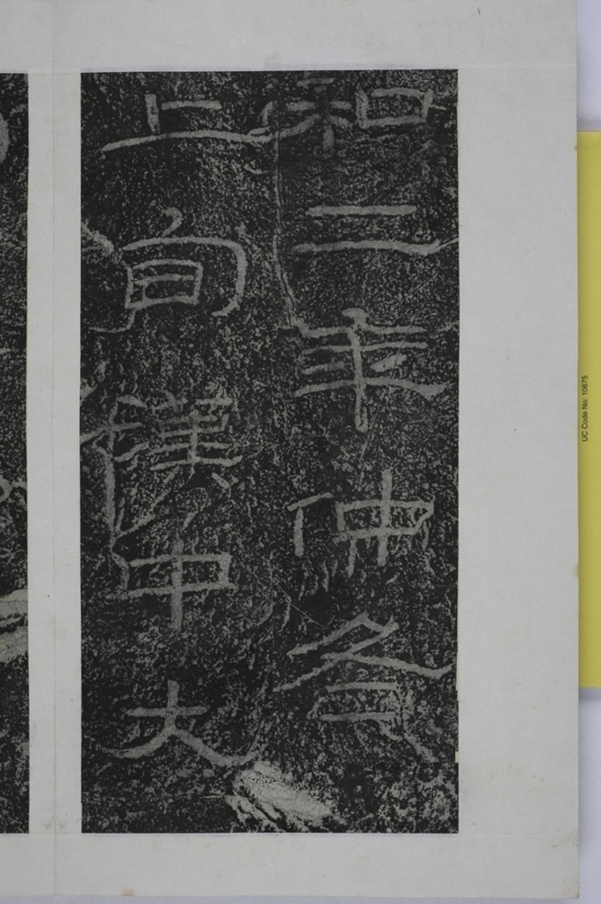 和二年仲冬
上旬漢中大
UC Code No: 10675